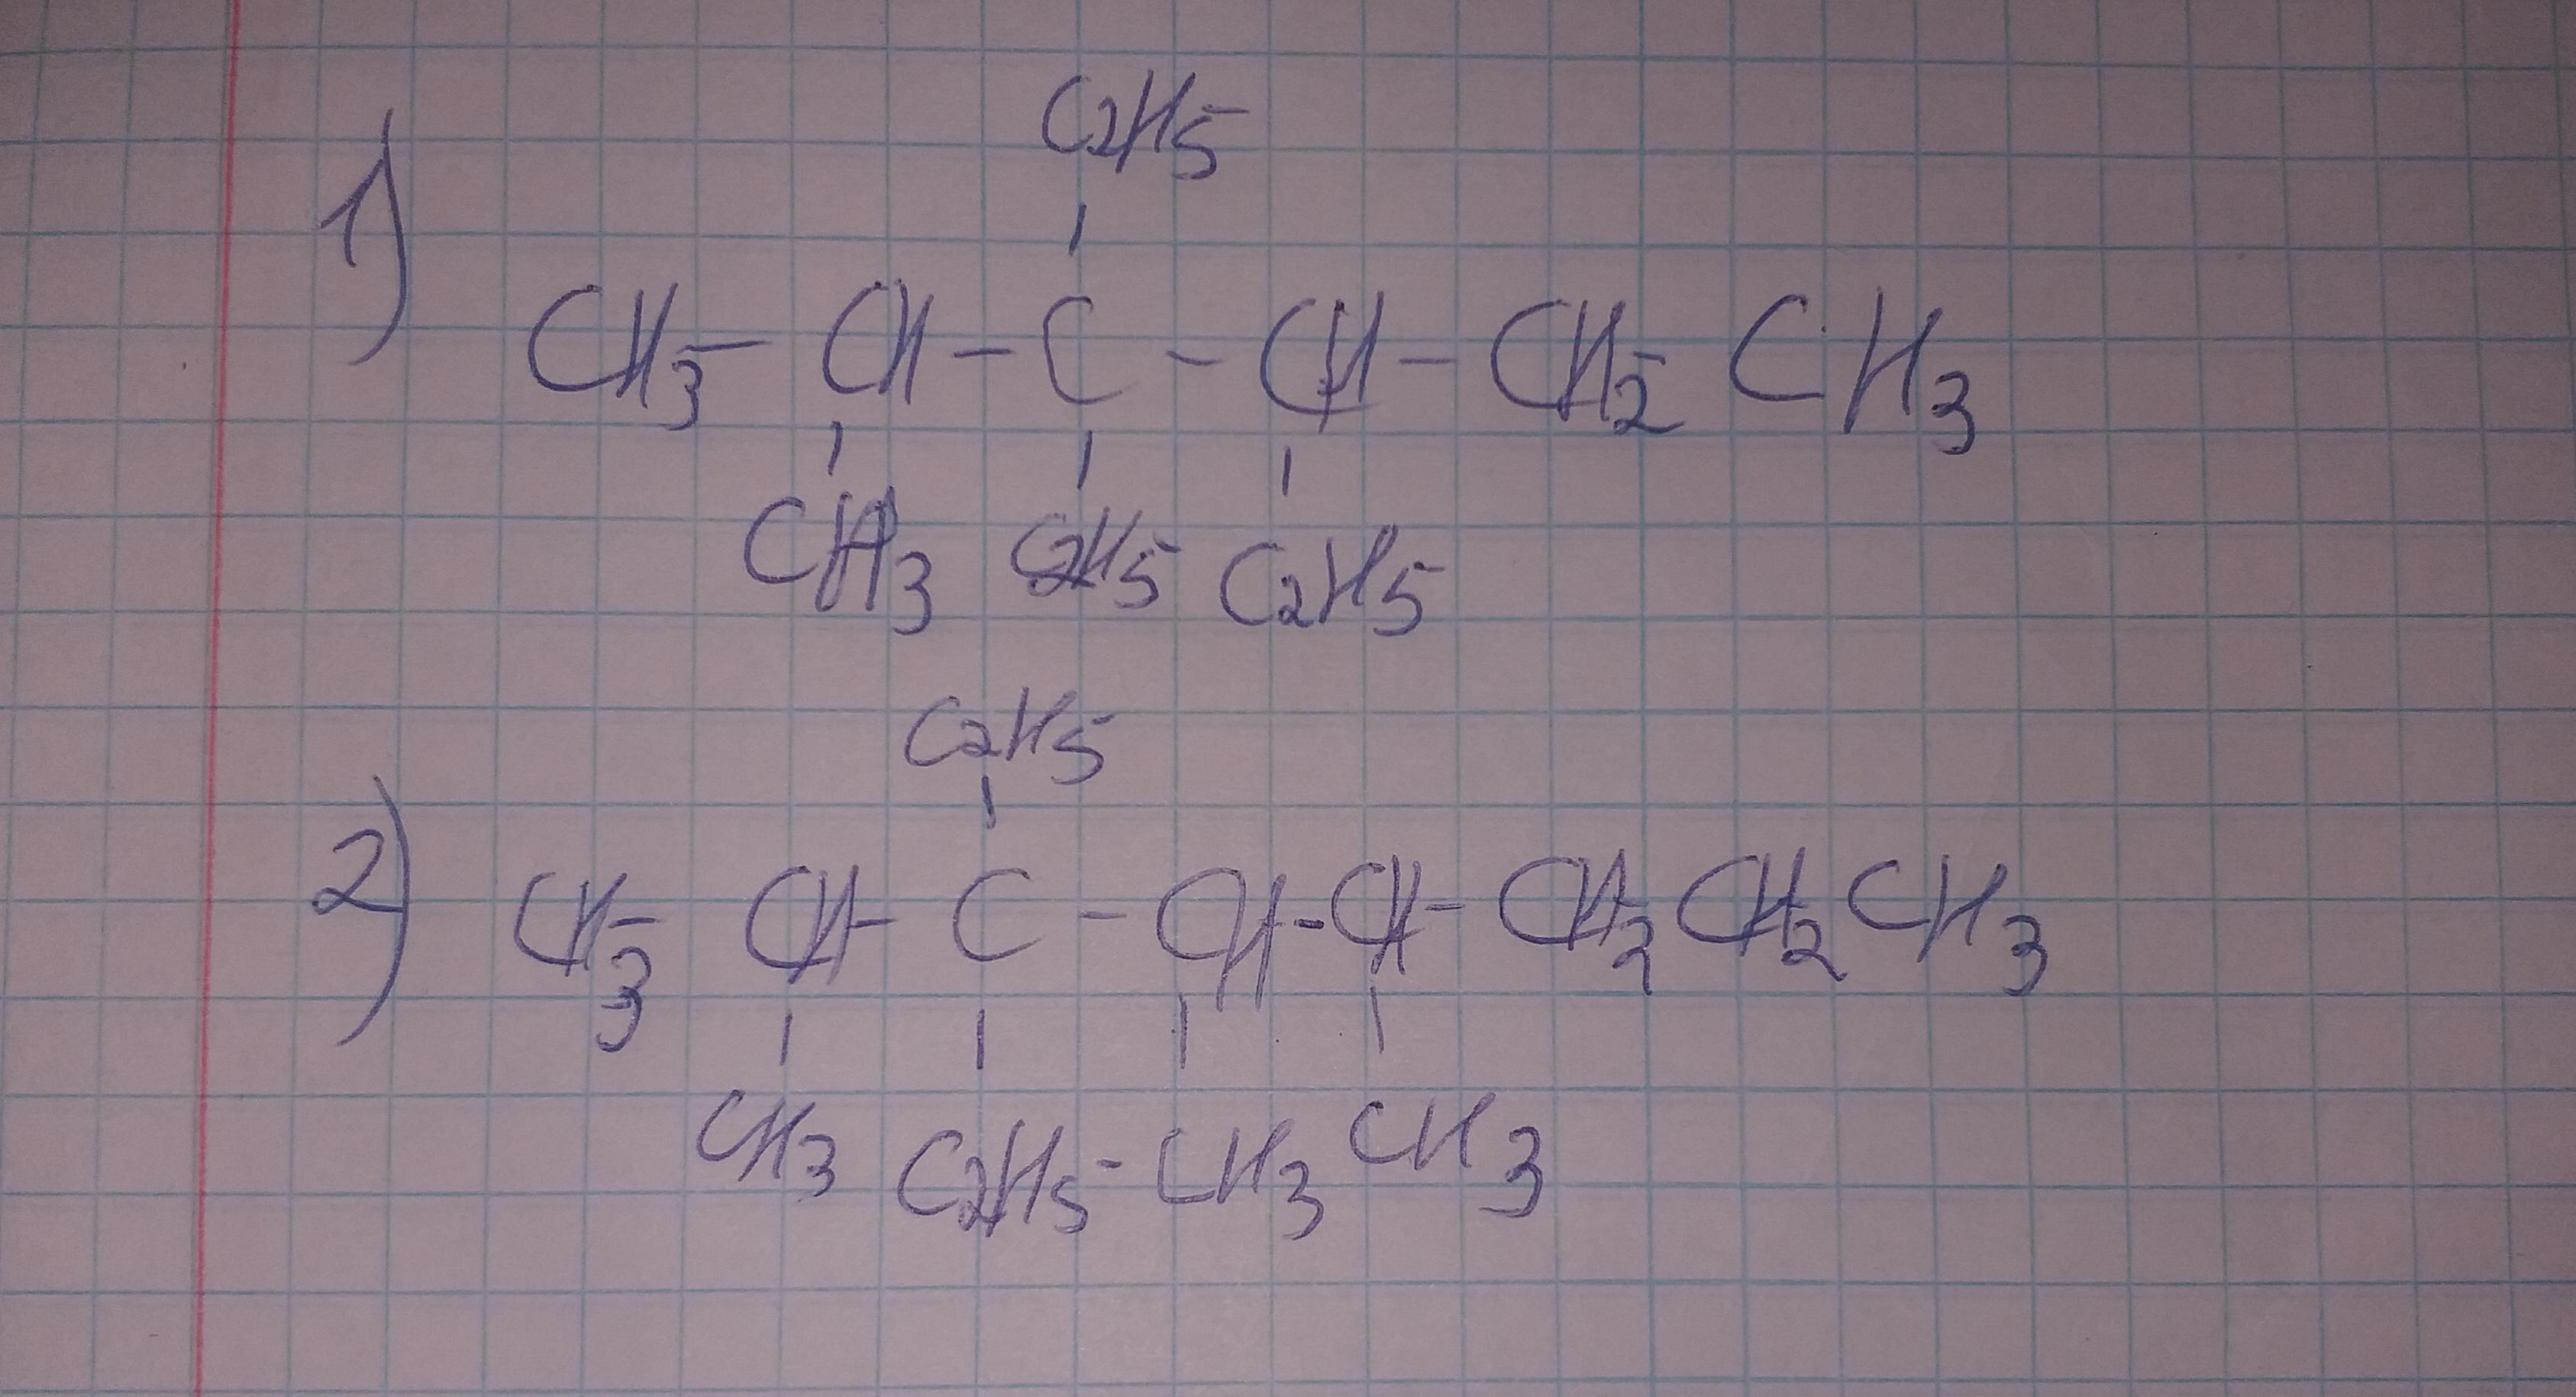 C2H5
1) CH3 - CH - C - CH - CH2 - CH3
CH3 C2H5 C2H5
C2H5
2) CH3 - CH - C - CH - CH - CH2 - CH2 - CH3
CH3 C2H5 - CH3 CH3